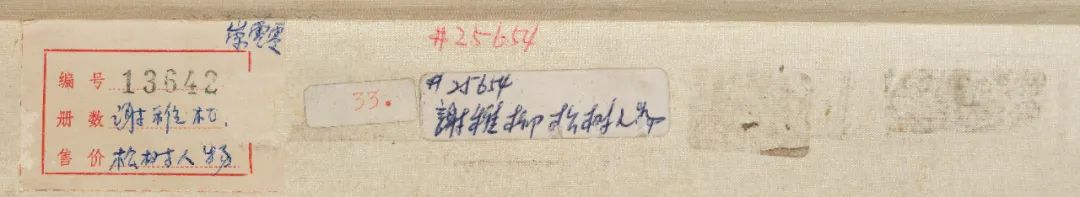 荣零零
编号 13642
册数 谢稚柳
售价 松树人物
33.
#25654
#25654
謝稚柳松树人物